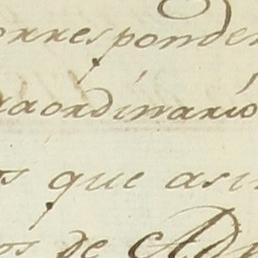 orresponden
raordinario
os que asi
os de Ad